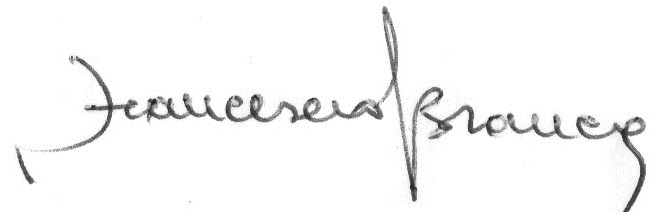 Francesco Branca